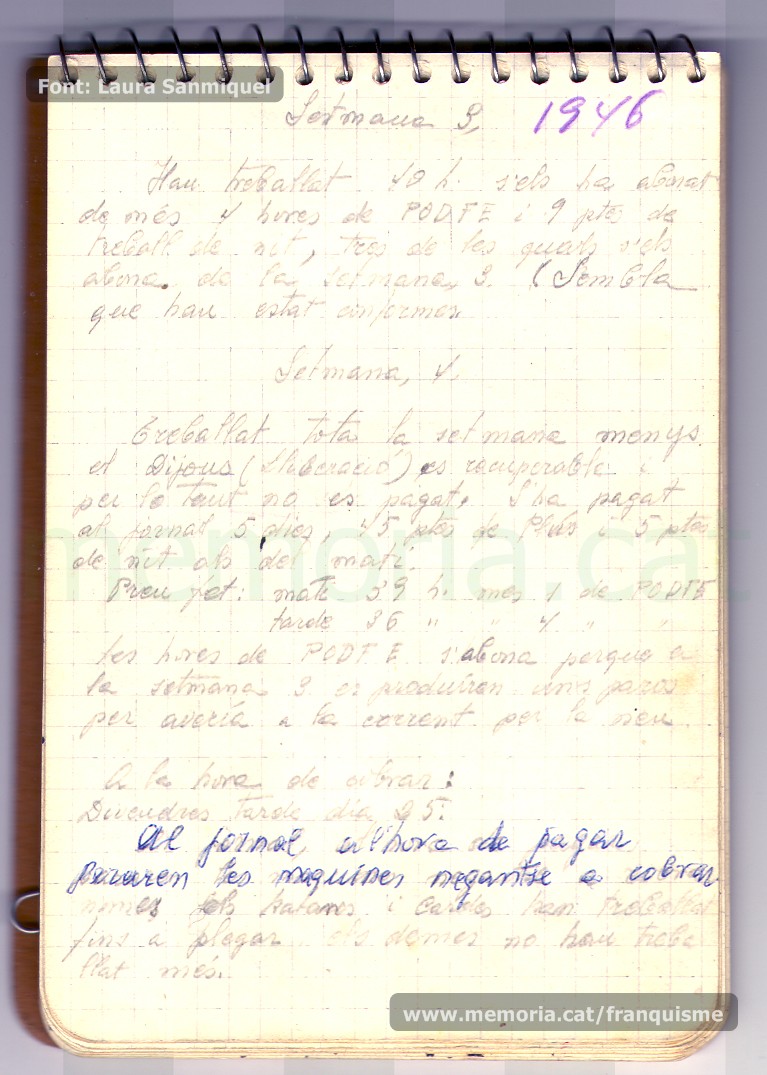 Font: Laura Sanmiquel
Setmana 3, 1946
Han treballat 40 h. s'els ha abonat
de més 4 hores de PODFE i 9 ptes de
treball de nit, tres de les quals s'els
abona. de la setmana, 3. (Sembla
que han estat conformes
Setmana, 4.
Treballat tota la setmana menys
el Dijous (Lliberació) es recuperable i
per lo tant no es pagat, S'ha pagat
al jornal 5 dies, 45 ptes de Plus i 5 ptes
de nit als del matí.
Preu fet: matí 39 h. mes 1 de PODFE
tarde 36 " " 4 " "
les hores de PODFE s'abona perque a
la setmana 3 es produiren uns paros
per averia a la corrent per la neu.
A la hora de cobrar:
Divendres tarde dia 25.
Al jornal, a l'hora de pagar
pararen les maquines negantse a cobrar
nomes els batans i cardes han treballat
fins a plegar els demes no han treba
llat més.
memoria.cat
www.memoria.cat/franquisme